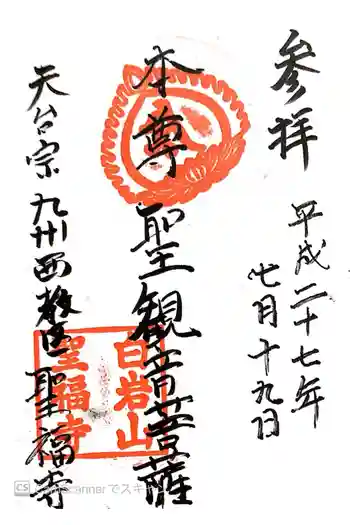 参拝
平成二十七年
七月十九日
本尊 聖観音菩薩
天台宗 九州西教区 聖福寺
白岩山
聖福寺
CS CamScannerでスキャン